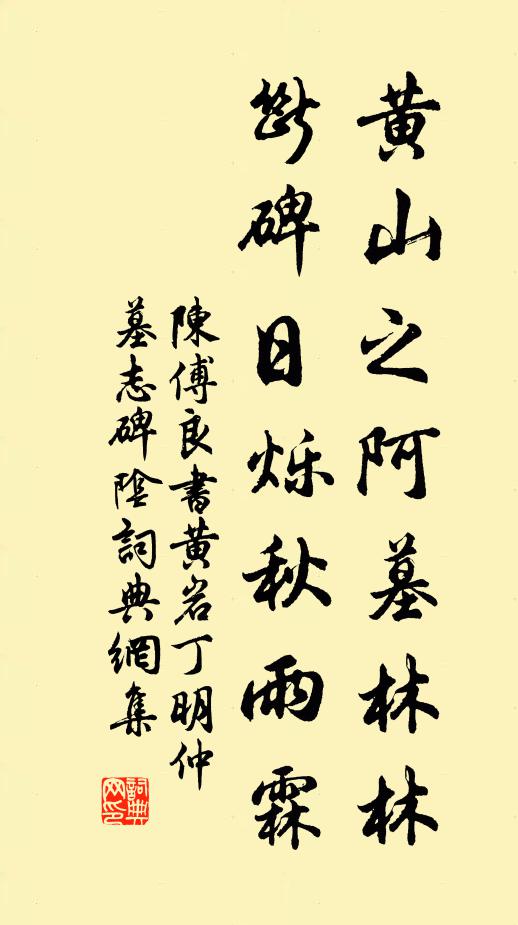 黄山之阿墓林林
斷碑日烁秋雨霖
陳傅良書黄岩丁明仲
墓志碑陰詞典網集
詞典
网印